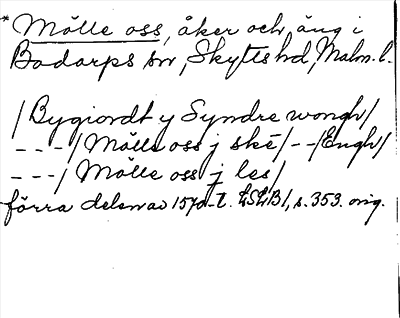 * Mölle oss, åker och äng i
Bodarps sn, Skytts hd, Malm. l.
/ Bygiordt y Syndre wongh/
- - - / Mölle oss j ské / - - /Engh/
- - - / Mölle oss j les/
förra delen av 1570-t. LSLB1, s. 353. orig.